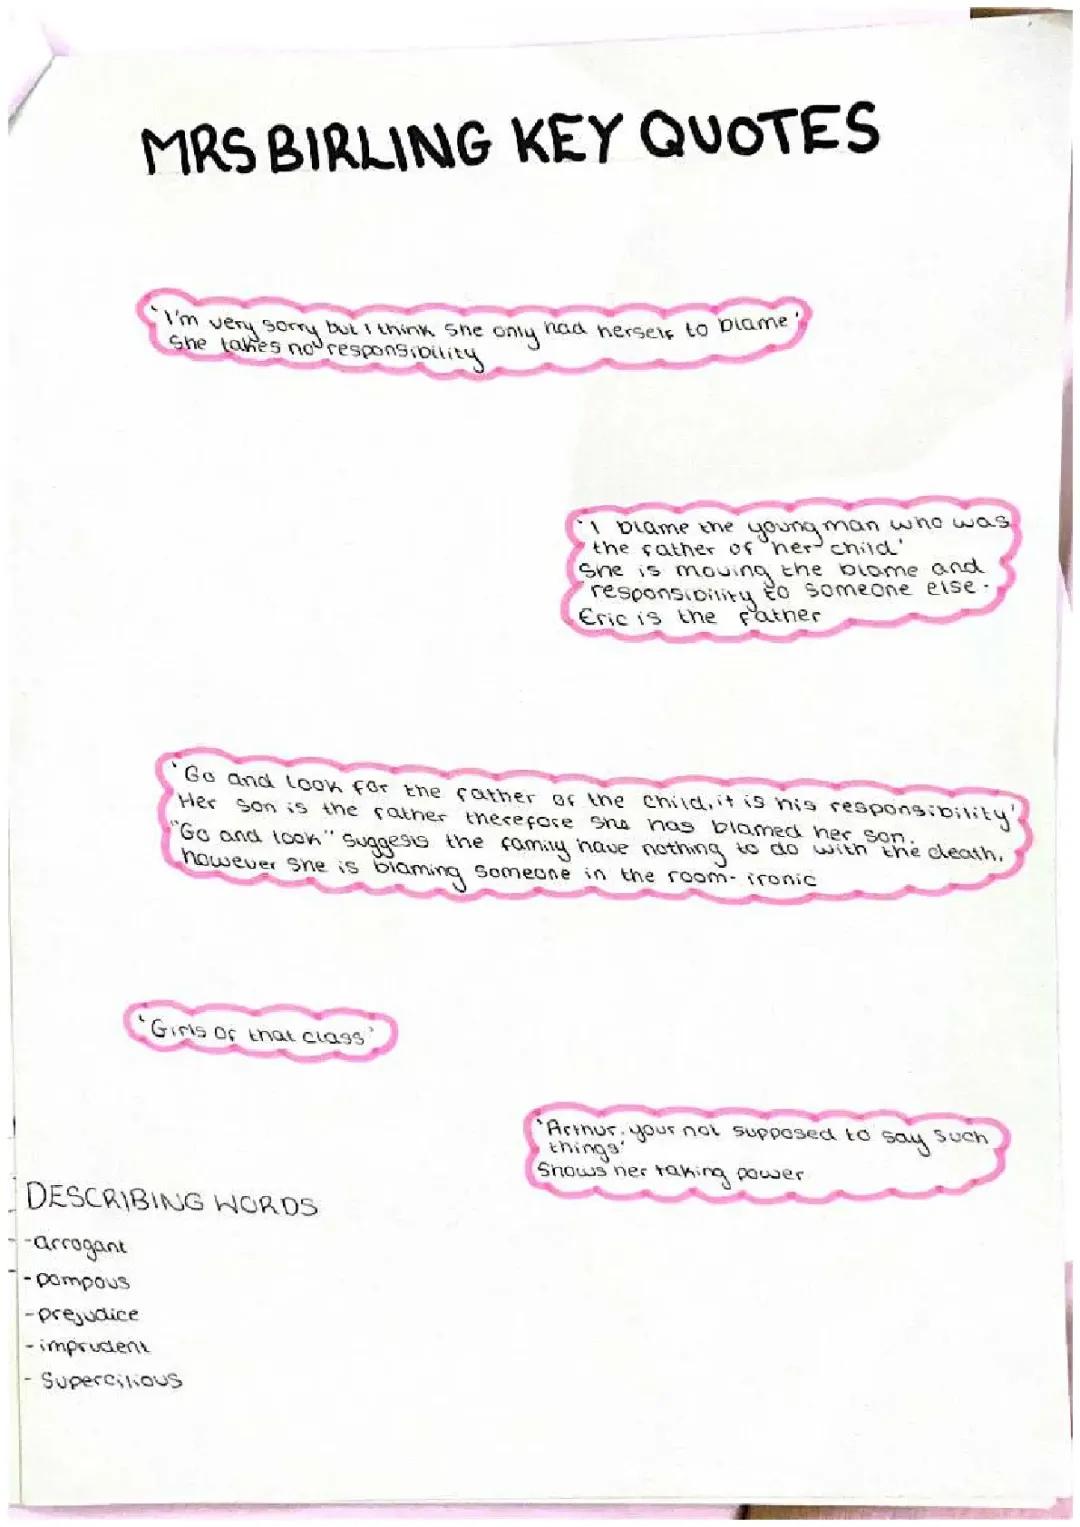 MRS BIRLING KEY QUOTES
'I'm very sorry but I think she only had herself to blame'
She takes no responsibility
'I blame the young man who was
the father of her child'
She is moving the blame and
responsibility to someone else.
Eric is the father
'Go and look for the father of the child, it is his responsibility'
Her son is the father therefore she has blamed her son.
"Go and look" suggests the family have nothing to do with the death,
however she is blaming someone in the room - ironic
'Girls of that class'
'Arthur, your not supposed to say such
things'
Shows her taking power
DESCRIBING WORDS
-arrogant
-pompous
-prejudice
-imprudent
- Supercilious